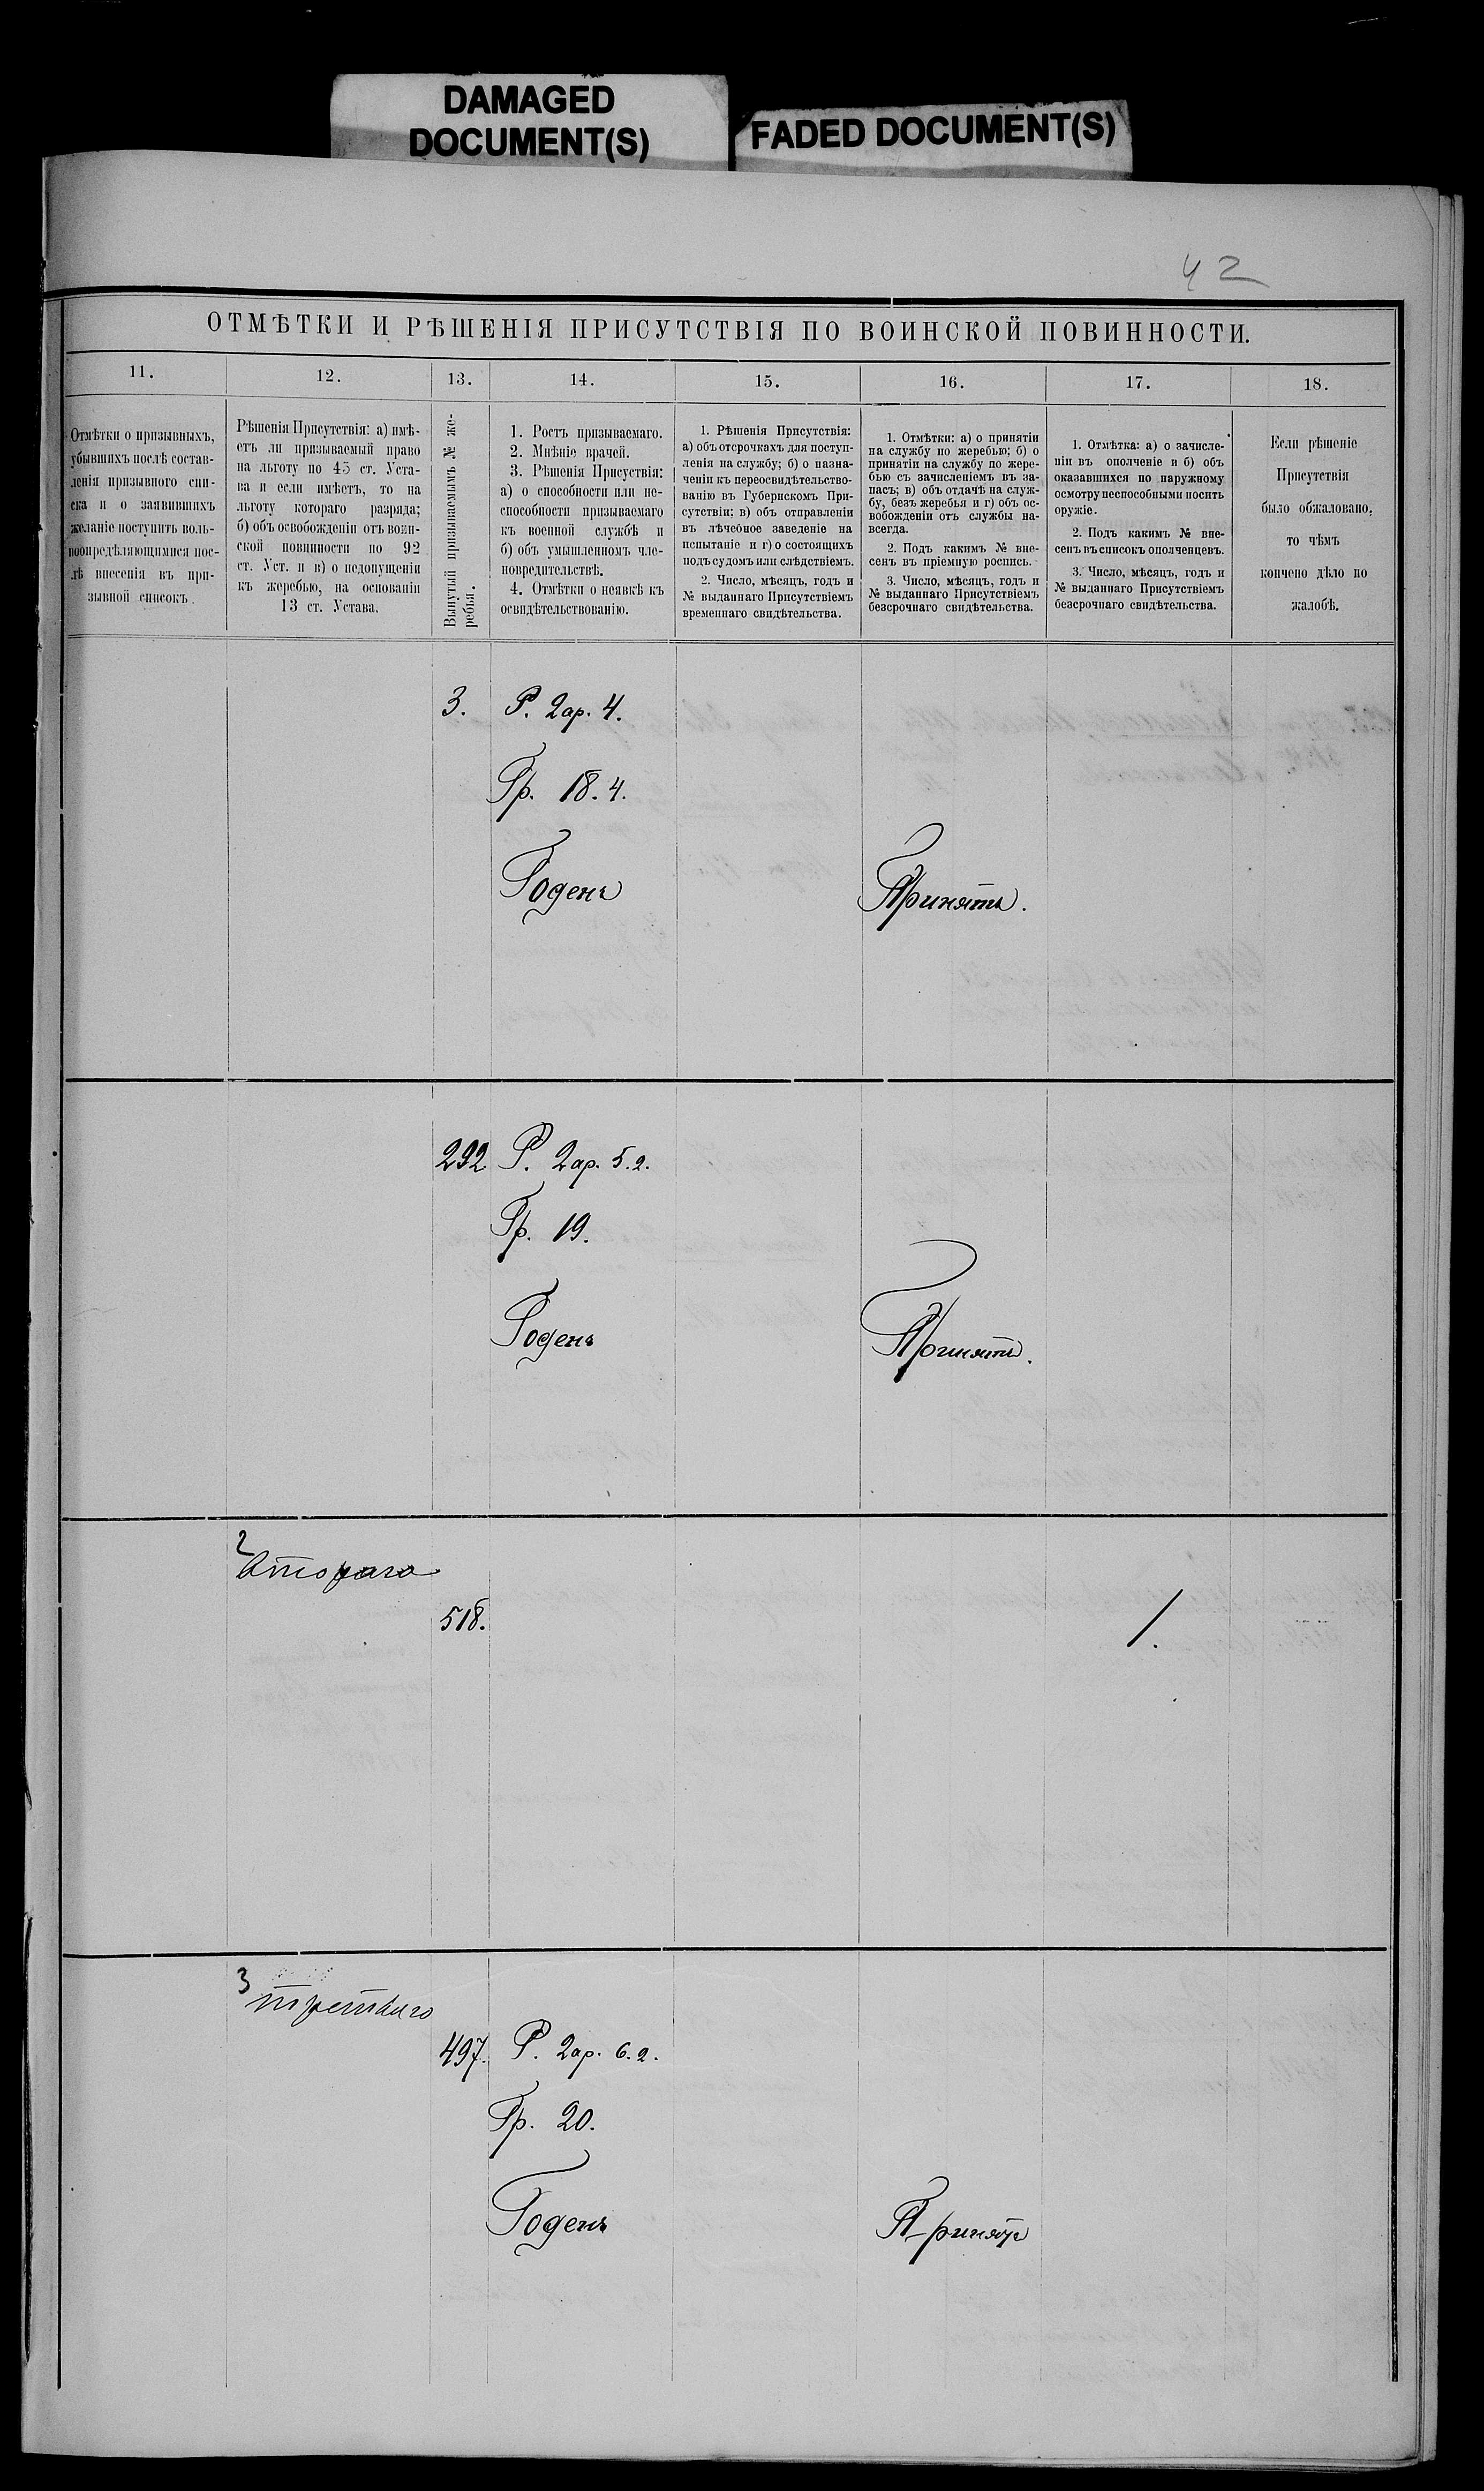 DAMAGED
DOCUMENT(S)
FADED DOCUMENT(S)
42
ОТМѢТКИ И РѢШЕНІЯ ПРИСУТСТВІЯ ПО ВОИНСКОЙ ПОВИННОСТИ.
11.
12.
13.
14.
15.
16.
17.
18.
Отмѣтки о призывныхъ,
убывшихъ послѣ состав-
ленія призывного спи-
ска и о заявившихъ
желаніе поступить воль-
ноопредѣляющимися пос-
лѣ внесенія въ при-
зывной списокъ.
Рѣшенія Присутствія: а) имѣ-
етъ ли призываемый право
на льготу по 45 ст. Уста-
ва и если имѣетъ, то на
льготу котораго разряда;
б) объ освобожденіи отъ воин-
ской повинности по 92
ст. Уст. и в) о недопущеніи
къ жеребью, на основаніи
13 ст. Устава.
Вынутый призываемымъ № же-
ребья.
1. Ростъ призываемаго.
2. Мнѣніе врачей.
3. Рѣшенія Присуствія:
а) о способности или не-
способности призываемаго
къ военной службѣ и
б) объ умышленномъ чле-
новредительствѣ.
4. Отмѣтки о неявкѣ къ
освидѣтельствованію.
1. Рѣшенія Присутствія:
а) объ отсрочкахъ для поступ-
ленія на службу; б) о назна-
ченіи къ переосвидѣтельство-
ванію въ Губернскомъ При-
сутствіи; в) объ отправленіи
въ лѣчебное заведеніе на
испытаніе и г) о состоящихъ
подъ судомъ или слѣдствіемъ.
2. Число, мѣсяцъ, годъ и
№ выданнаго Присутствіемъ
временнаго свидѣтельства.
1. Отмѣтки: а) о принятіи
на службу по жеребью; б) о
принятіи на службу по жере-
бью съ зачисленіемъ въ за-
пасъ; в) объ отдачѣ на служ-
бу, безъ жеребья и г) объ ос-
вобожденіи отъ службы на-
всегда.
2. Подъ какимъ № вне-
сенъ въ пріемную роспись.
3. Число, мѣсяцъ, годъ и
№ выданнаго Присутствіемъ
безсрочнаго свидѣтельства.
1. Отмѣтка: а) о зачисле-
ніи въ ополченіе и б) объ
оказавшихся по наружному
осмотру неспособными носить
оружіе.
2. Подъ какимъ № вне-
сенъ въ списокъ ополченцевъ.
3. Число, мѣсяцъ, годъ и
№ выданнаго Присутствіемъ
безсрочнаго свидѣтельства.
Если рѣшеніе
Присутствія
было обжаловано,
то чѣмъ
кончено дѣло по
жалобѣ.
3. Р. 2 ар. 4.
Гр. 18. 4.
Годенъ
Принять.
292 Р. 2 ар. 5. 2.
Гр. 19.
Годенъ
Принять.
2
второго
518.
1.
3
третьяго
497. Р. 2 ар. 6. 2.
Гр. 20.
Годенъ
Принятъ